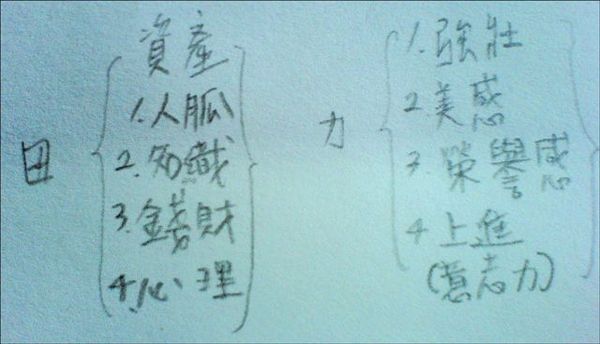 田
資產
1.人脈
2.知識
3.錢財
4.心理
力
1.強壯
2美感
3.榮譽感
4上進
(意志力)